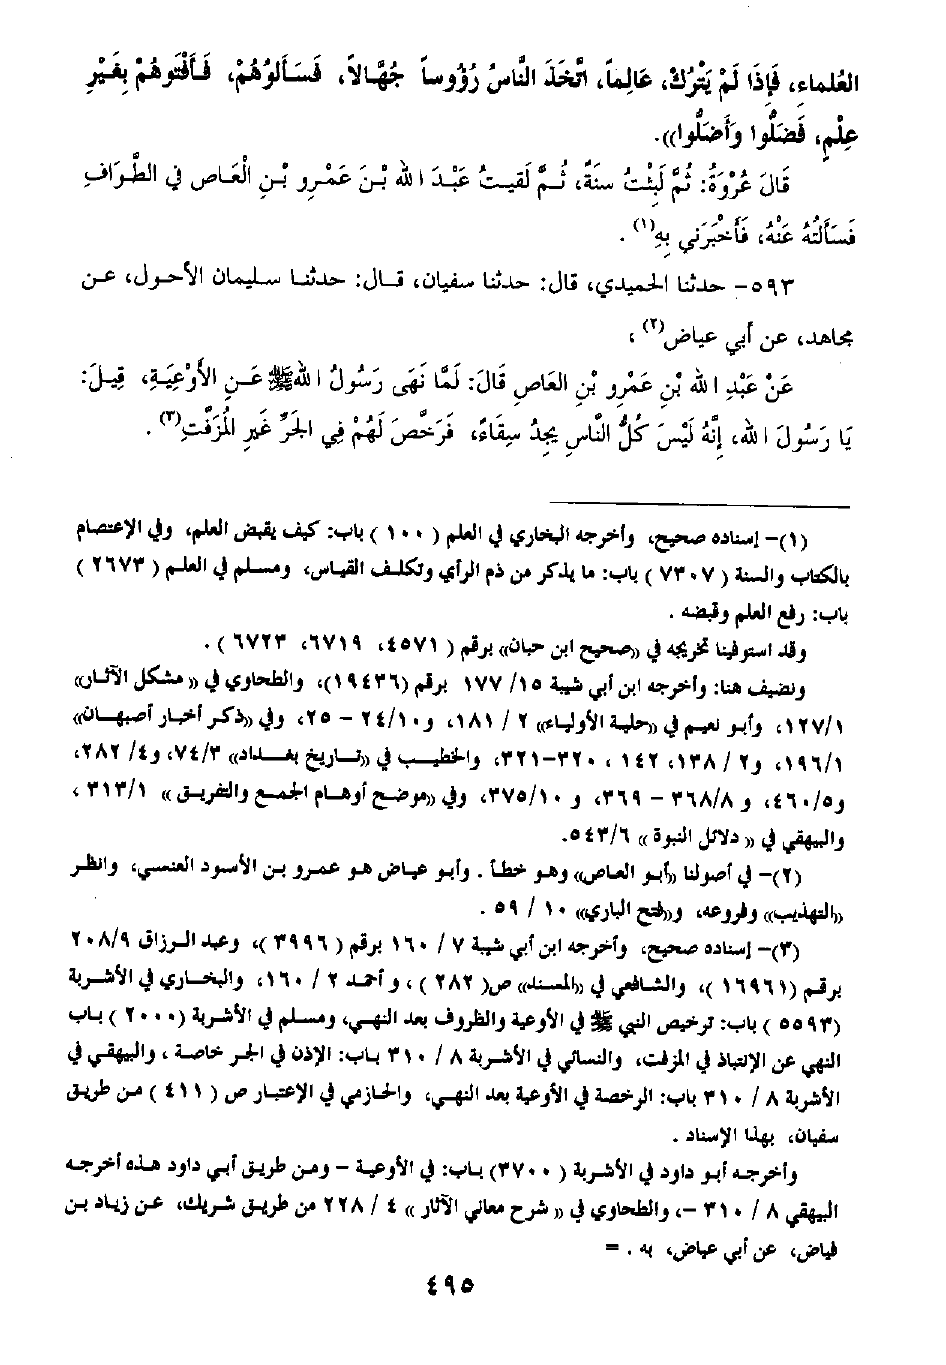 العُلماءِ، فَإِذَا لَمْ يَتْرُكْ، عَالِماً، اتَّخَذَ النَّاسُ رُؤُوساً جُهَّالاً، فَسَأَلُوُهُمْ، فَأَفْتَوهُمْ بِغَيْرِ
عِلْمٍ، فَضَلُّوا وَأَضَلُّوا)).
قَالَ عُرْوَةُ: ثُمَّ لَبِثْتُ سنَةً، ثُمَّ لَقيتُ عَبْدَ الله بْنَ عَمْرِو بْنِ الْعَاص في الطَّوَافِ
فَسَأَلْتُهُ عَنْهُ، فَأَخْبَرَني بِهِ(١) .
٥٩٣- حدثنا الحميدي، قال: حدثنا سفيان، قال: حدثنا سليمان الأحول، عن
مجاهد، عن أبي عياض(٢) ،
عَنْ عَبْدِ الله بْنِ عَمْرِو بْنِ العَاصِ قَالَ: لَمَّا نَهَى رَسُولُ اللهﷺ عَنِ الأَوْعِيَةِ، قِيلَ:
يَا رَسُولَ الله، إِنَّهُ لَيْسَ كُلُّ النَّاسِ يَجِدُ سِقَاءً، فَرَخَّصَ لَهُمْ فِي الجَرِّ غَيرِ المُزَفَّتِ(٣) .
(١)- إسناده صحيح، وأخرجه البخاري في العلم ( ١٠٠ ) باب: كيف يقبض العلم، وفي الإعتصام
بالكتاب والسنة ( ٧٣٠٧ ) باب: ما يذكر من ذم الرأي وتكلف القياس، ومسلم في العلم ( ٢٦٧٣ )
باب: رفع العلم وقبضه .
وقد استوفينا تخريجه في ((صحيح ابن حبان)) برقم ( ٤٥٧١، ٦٧١٩، ٦٧٢٣ ) .
ونضيف هنا: وأخرجه ابن أبي شيبة ١٥/ ١٧٧ برقم (١٩٤٣٦)، والطحاوي في (( مشكل الآثار))
١٢٧/١، وأبو نعيم في ((حلية الأولياء)) ٢ / ١٨١، و٢٤/١٠ - ٢٥، وفي ((ذكر أخبار أصبهان))
١٩٦/١، و٢ / ١٣٨، ١٤٢ ، ٣٢٠-٣٢١، والخطيب في ((تاريخ بغداد)) ٧٤/٣، و٤/ ٢٨٢،
و٤٦٠/٥، و ٣٦٨/٨ - ٣٦٩، و ٣٧٥/١٠، وفي ((موضح أوهام الجمع والتفريق )) ٣١٣/١ ،
والبيهقي في (( دلائل النبوة )) ٥٤٣/٦.
(٢)- في أصولنا ((أبو العاص)) وهو خطأ . وأبو عياض هو عمرو بن الأسود العنسي، وانظر
((التهذيب)) وفروعه، و((فتح الباري)) ١٠ / ٥٩ .
(٣)- إسناده صحيح، وأخرجه ابن أبي شيبة ٧ / ١٦٠ برقم ( ٣٩٩٦ )، وعبد الرزاق ٢٠٨/٩
برقم (١٦٩٦١ )، والشافعي في ((المسند)) ص( ٢٨٢ ) ، و أحمد ٢ / ١٦٠، والبخاري في الأشربة
(٥٥٩٣ ) باب: ترخيص النبي ﷺ في الأوعية والظروف بعد النهي، ومسلم في الأشربة (٢٠٠٠ ) باب
النهي عن الإنتباذ في المزفت، والنسائي في الأشربة ٨ / ٣١٠ باب: الإذن في الجر خاصة ، والبيهقي في
الأشربة ٨ / ٣١٠ باب: الرخصة في الأوعية بعد النهي، والحازمي في الإعتبار ص ( ٤١١ ) من طريق
سفيان، بهذا الإسناد .
وأخرجه أبو داود في الأشربة ( ٣٧٠٠) باب: في الأوعية - ومن طريق أبي داود هذه أخرجه
البيهقي ٨ / ٣١٠ -، والطحاوي في (( شرح معاني الآثار )) ٤ / ٢٢٨ من طريق شريك، عن زياد بن
فياض، عن أبي عياض، به . =
٤٩٥